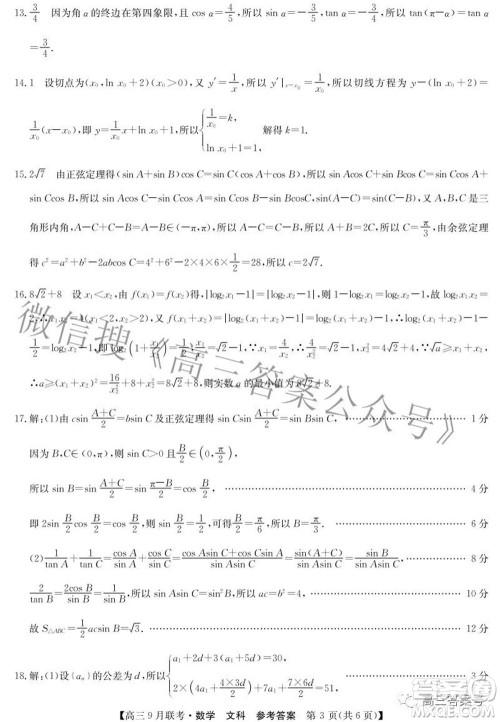 13. 3/4 因为角α的终边在第四象限,且 cos α=4/5,所以 sin α=−3/5,tan α=−3/4,所以 tan(π−α)=−tan α
=3/4.
14. 1 设切点为(x₀,ln x₀+2)(x₀>0),又 y′=1/x,所以 y′|ₓ₌ₓ₀=1/x₀,所以切线方程为 y−(ln x₀+2)=
1/x₀(x−x₀),即 y=1/x₀ x+ln x₀+1,所以{1/x₀=k, ln x₀+1=1, 解得 k=1.
15. 2√7 由正弦定理得(sin A+sin B)cos C=sin C(cos A+cos B),所以 sin Acos C+sin Bcos C=sin Ccos A+
sin Ccos B,所以 sin Acos C−sin Ccos A=sin Ccos B−sin BcosC,所以 sin(A−C)=sin(C−B),又 A,B,C 是三
角形内角,A−C+C−B=A−B∈(−π,π),所以 A−C=C−B,所以 A+B=2C,所以 C=π/3,由余弦定理
得 c²=a²+b²−2abcos C=4²+6²−2×4×6×1/2=28,所以 c=2√7.
16. 8√2+8 设 x₁<x₂,由 f(x₁)=f(x₂)得,|log₂x₁−1|=|log₂x₂−1|,则 1−log₂x₁=log₂x₂−1,故 log₂x₁x₂=
17. 解:(1)由 csin (A+C)/2=bsin C及正弦定理得 sin Csin (A+C)/2=sin Bsin C. 1 分
因为 B,C∈(0,π),则 sin C>0 且 B/2∈(0,π/2),
所以 sin B=sin (A+C)/2=sin (π−B)/2=cos B/2, 4 分
即 2sin B/2 cos B/2=cos B/2,则 sin B/2=1/2,可得 B/2=π/6,所以 B=π/3. 6 分
(2) 1/tan A+1/tan C=cos A/sin A+cos C/sin C=(cos Asin C+cos Csin A)/(sin Asin C)=sin(A+C)/(sin Asin C)=sin B/(sin Asin C), 8 分
2/tan B=2cos B/sin B=1/sin B,所以 sin Asin C=sin²B,所以 ac=b²=4, 10 分
故 S△ABC=1/2 acsin B=√3. 12 分
18. 解:(1)设{aₙ}的公差为 d,所以{a₁+2d+3(a₁+5d)=30, 2×(4a₁+(4×3)/2 d)+7a₁+(7×6)/2 d=51,
【高三9月联考·数学 文科 参考答案 第3页(共6页)】
微信搜《高三答案公众号》
高三答案号